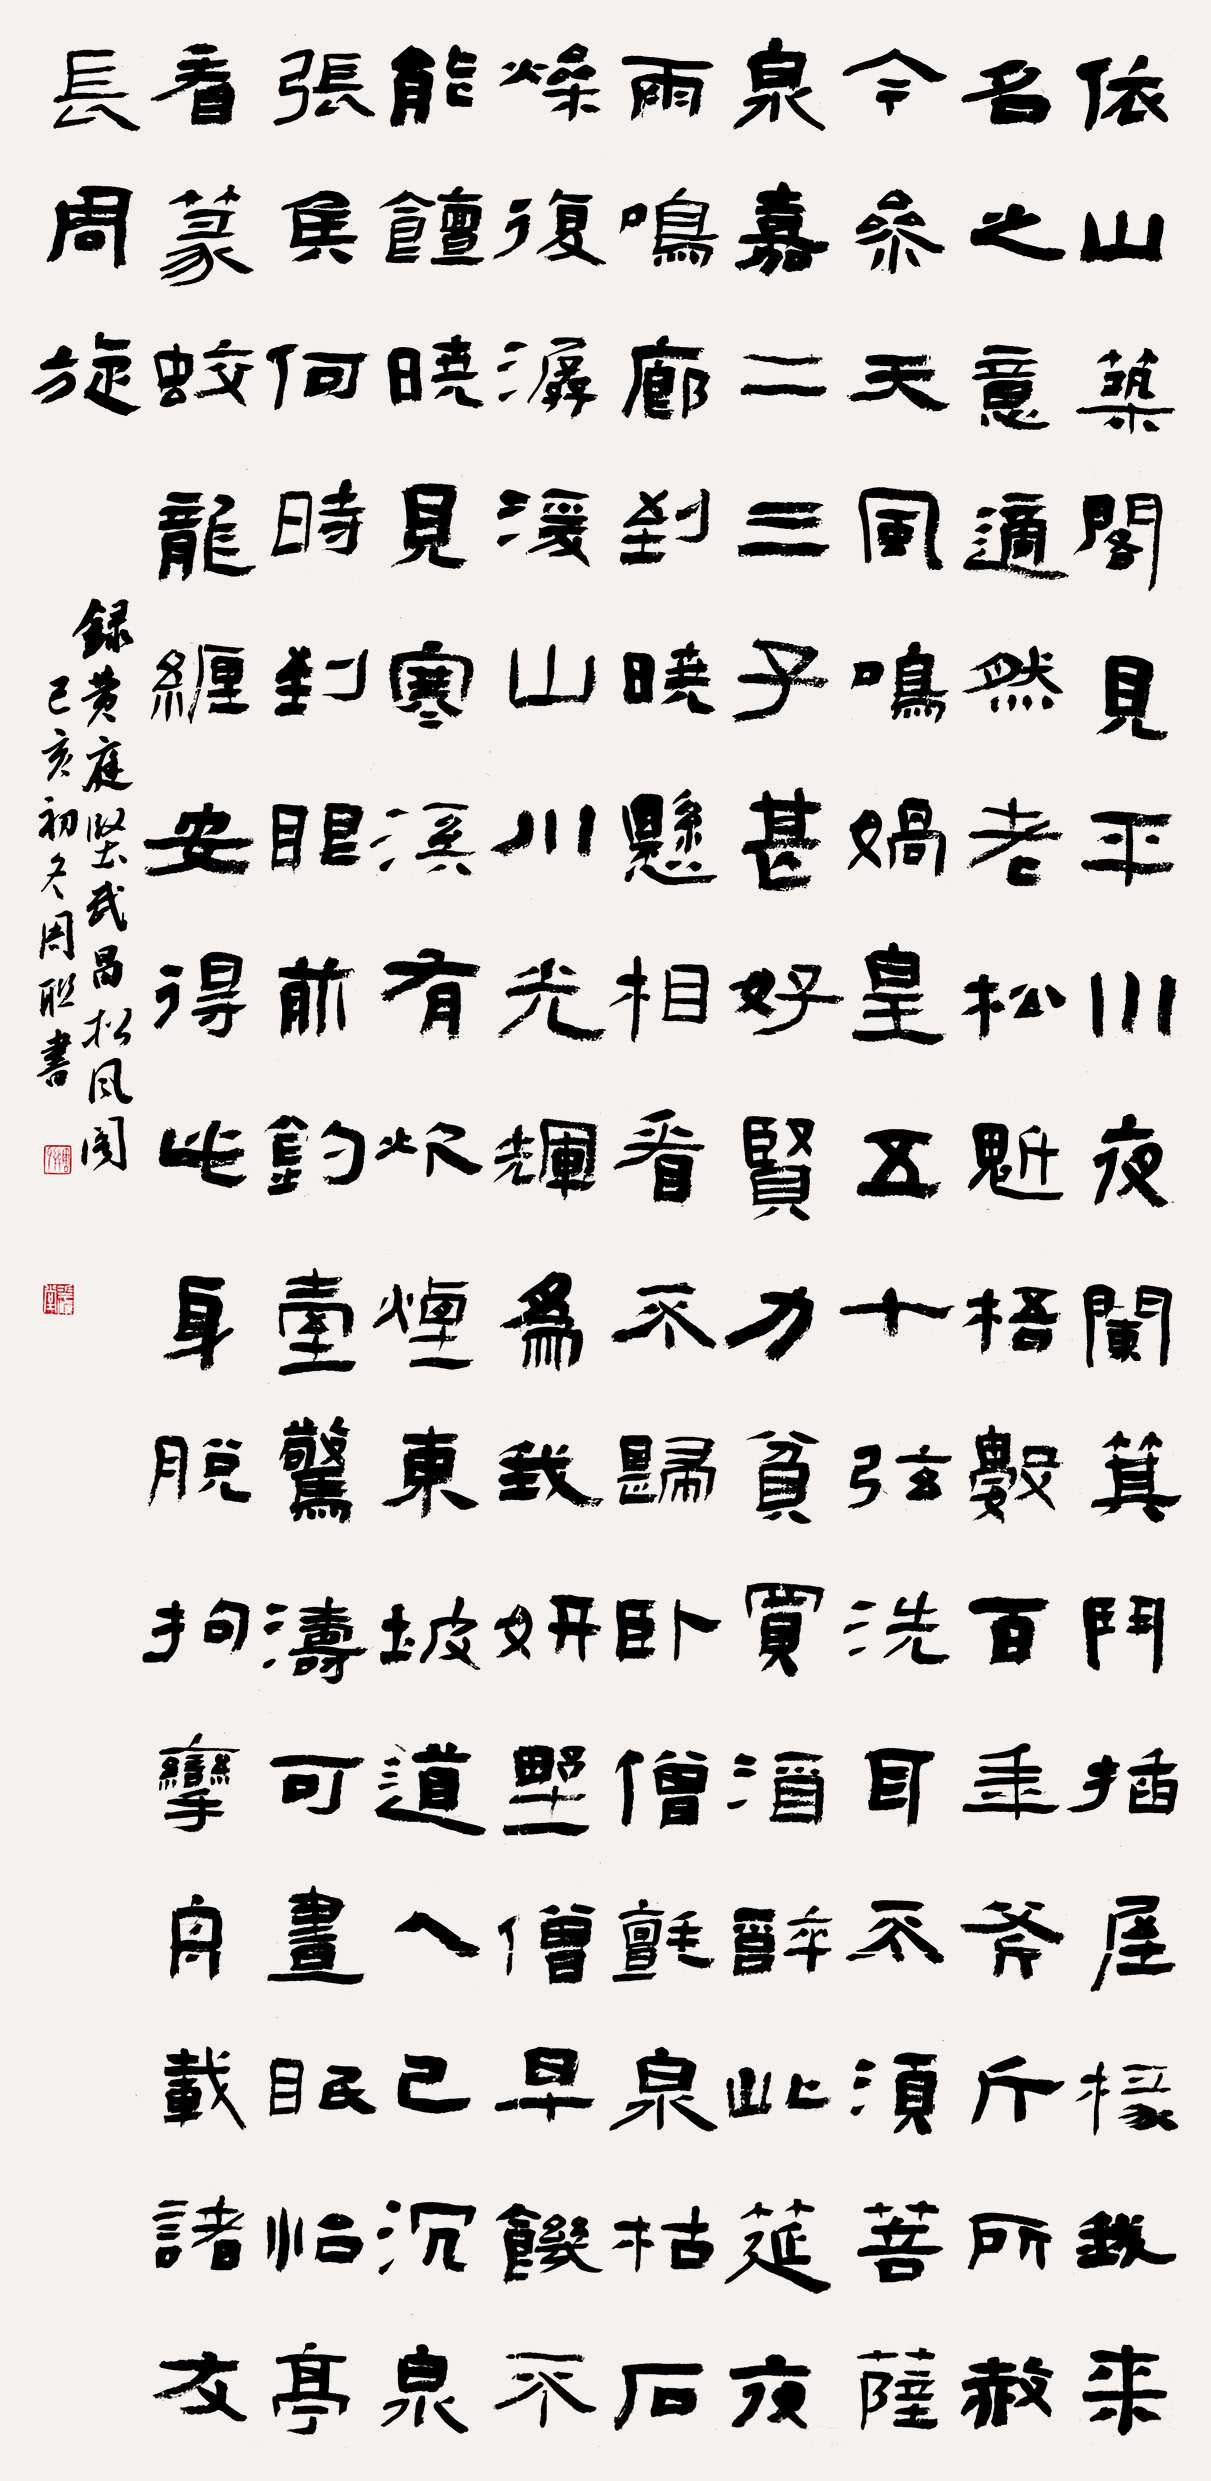 依山築閣見平川夜闌箕鬥插屋椽我来
名之意適然老松魁梧數百年斧斤所赦
今參天風鳴媧皇五十弦洗耳不須菩薩
泉嘉二三子甚好賢力貧買酒醉此筵夜
雨鳴廊到曉懸相看不歸臥僧氈泉枯石
燥復潺湲山川光輝為我妍野僧早饑不
能饘曉見寒溪有炊煙東坡道人已沉泉
張侯何時到眼前釣臺驚濤可晝眠怡亭
看篆蛟龍纏安得此身脫拘攣舟載諸友
長周旋
録黄庭坚武昌松风阁
己亥初冬周書